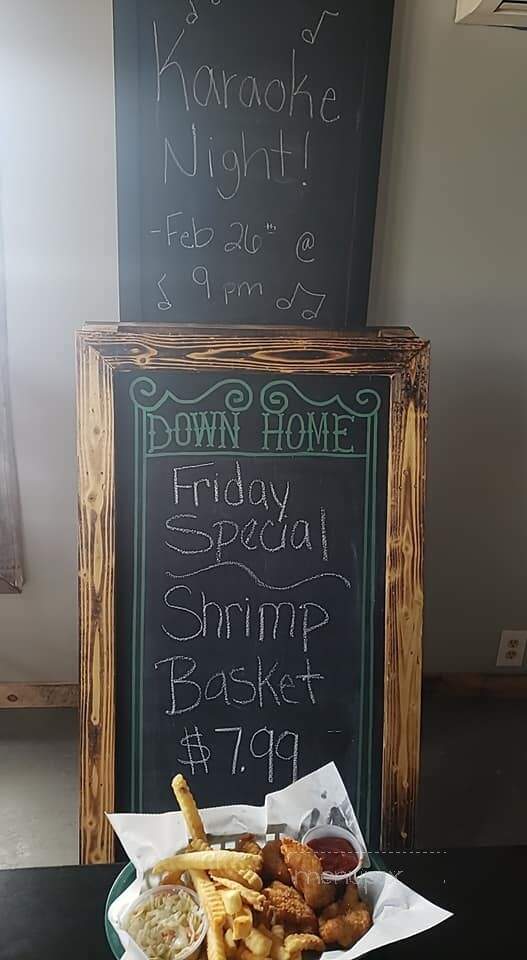 Karaoke
Night!
-Feb 26th @
9 pm
DOWN HOME
Friday
Special
Shrimp
Basket
$7.99
menupix